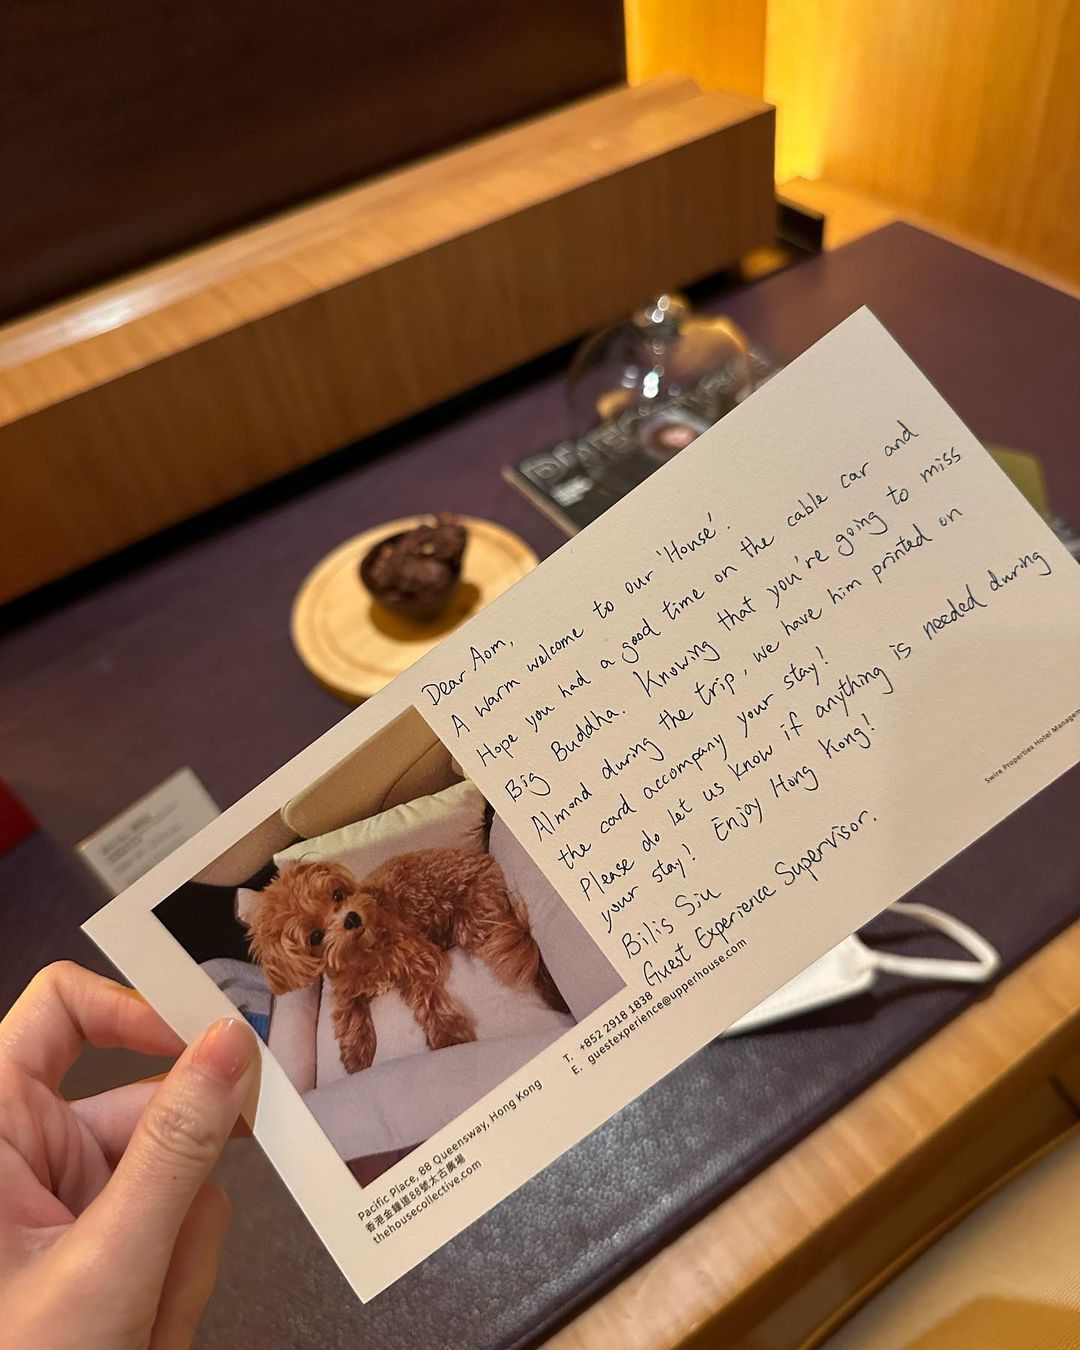 Dear Aom,
A warm welcome to our 'House'.
Hope you had a good time on the cable car and
Big Buddha. Knowing that you're going to miss
Almond during the trip, we have him printed on
the card accompany your stay!
Please do let us know if anything is needed during
your stay! Enjoy Hong Kong!
Bilis Siu
Guest Experience Supervisor.
T. +852 2918 1838
E. guestexperience@upperhouse.com
Pacific Place, 88 Queensway, Hong Kong
香港金鐘道88號太古廣場
thehousecollective.com
Swire Properties Hotel